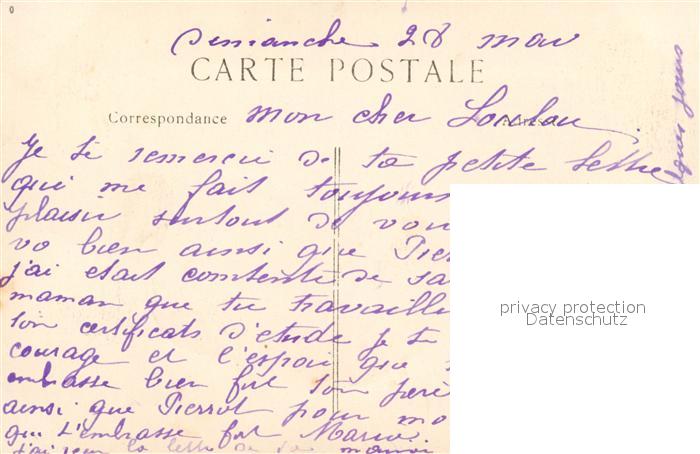 Dimanche 28 mai
CARTE POSTALE
Correspondance mon cher Loulou
Je te remercie de ta petite lettre
qui me fait toujours
plaisir surtout de vou
va bien ainsi que Pier
j'ai etait contente de sa
maman que tu travaille
ton certificats d'etude je te
courage et l'espoir que
embrasse bien fort ton père
ainsi que Pierrot pour mo
qui t'embrasse fort
j'ai la lettre de ta maman
jours
privacy protection
Datenschutz